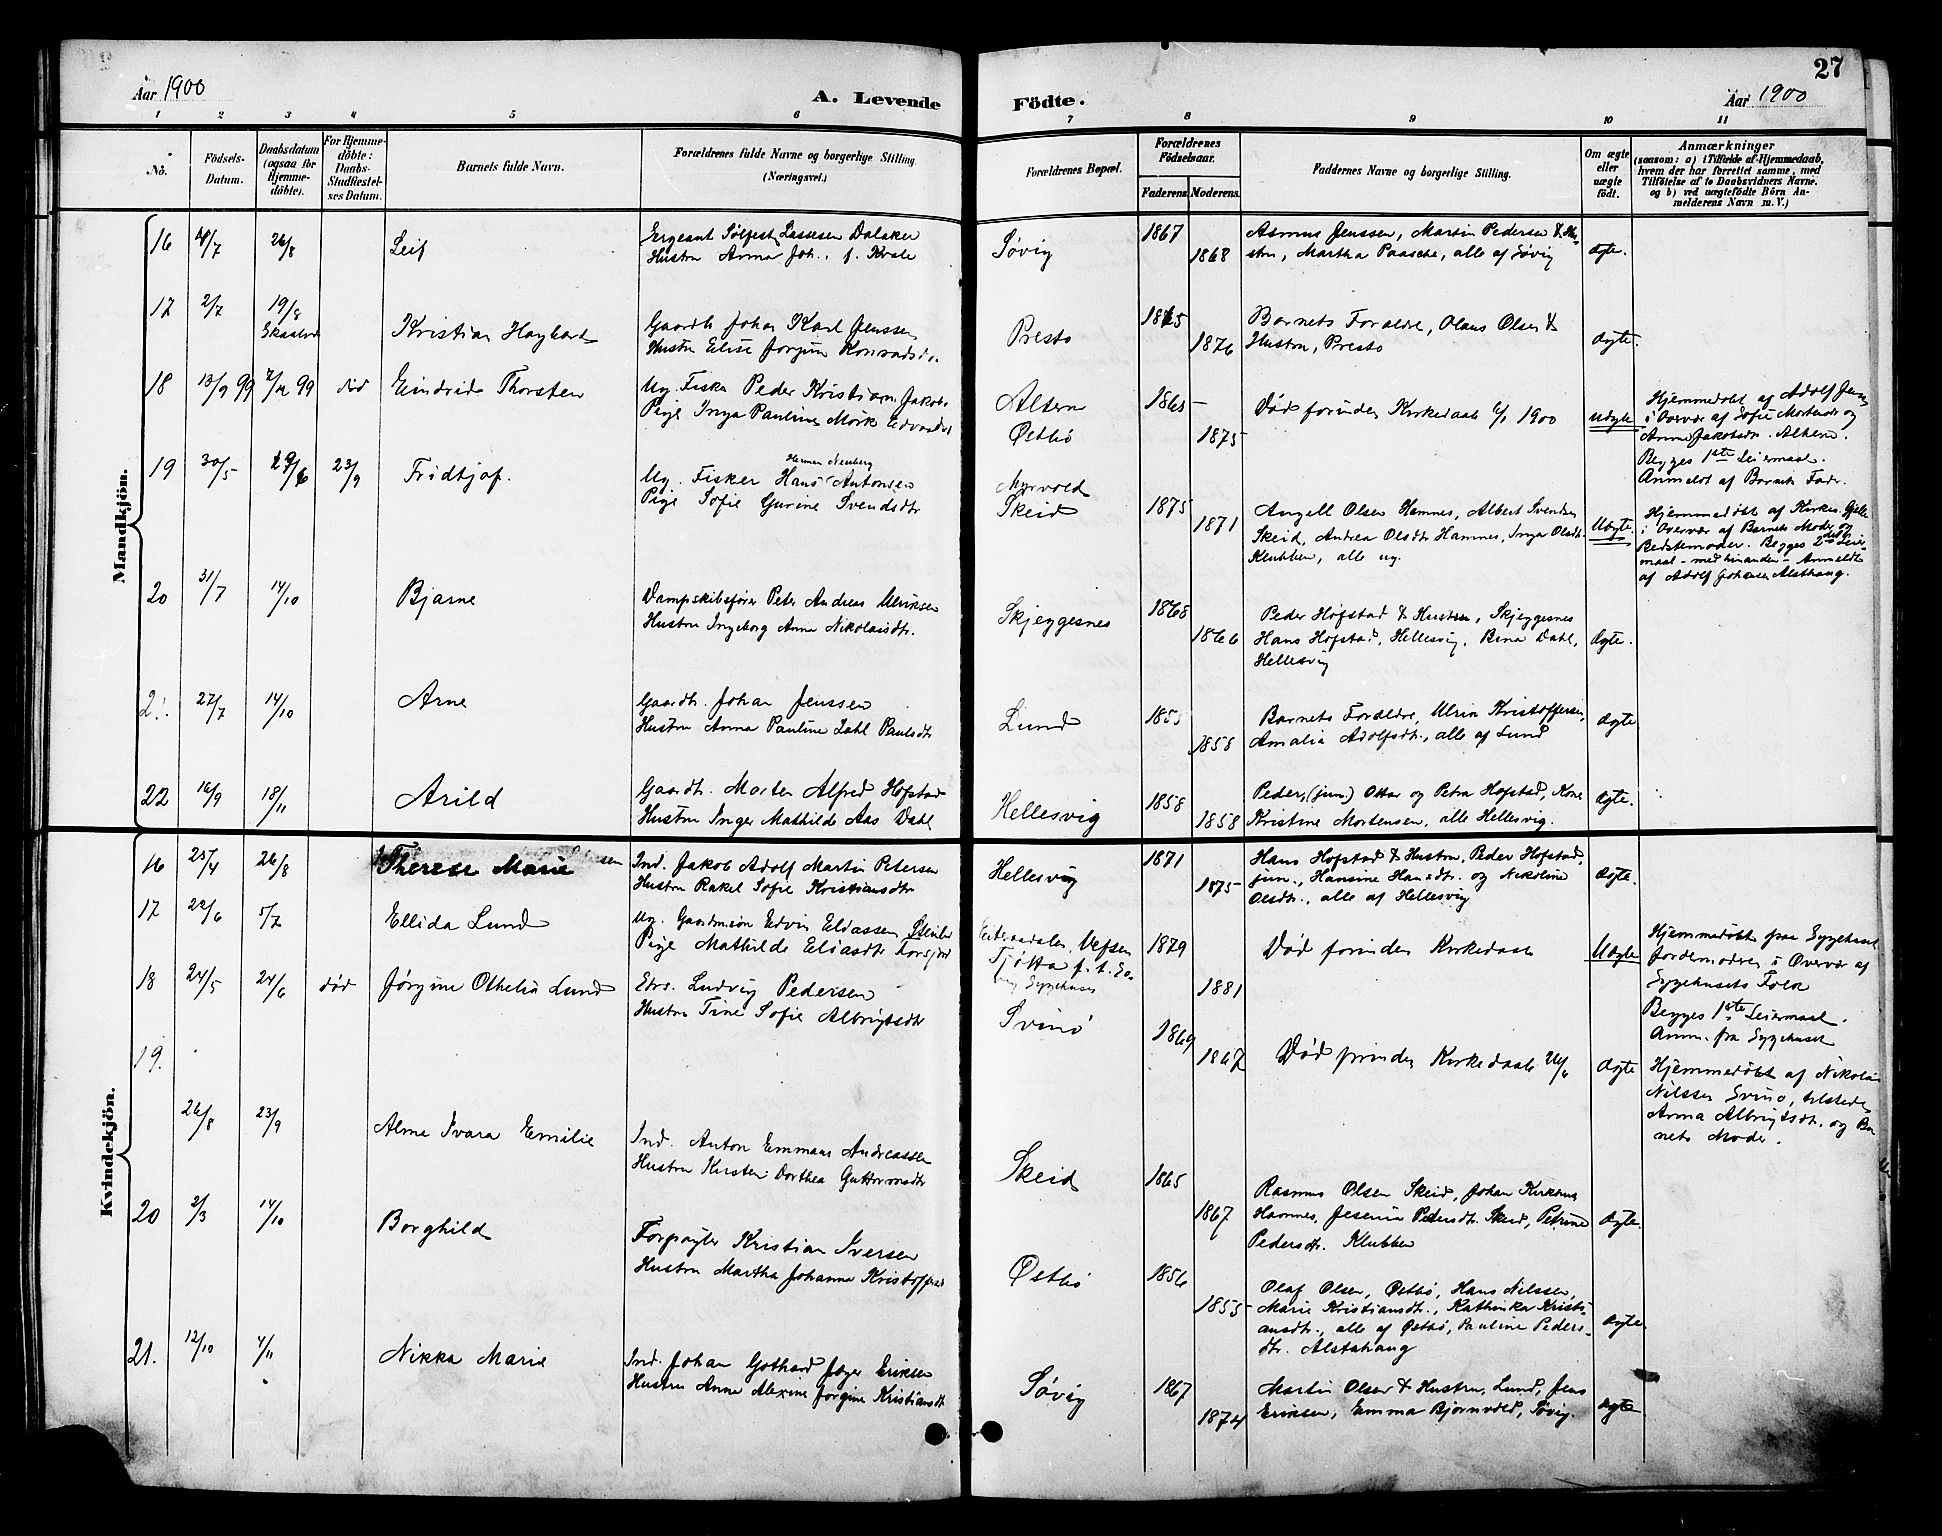 Aar 1900
A. Levende
Födte.
27
Aar 1900
1 2 3 4 5 6 7 8 9 10 11
No.
Födsels-
Datum.
Daabsdatum
(ogsaa for
Hjemme-
döbte).
For Hjemme-
döbte:
Daabs-
Stadfæstel-
ses Datum.
Barnets fulde Navn.
Forældrenes fulde Navne og borgerlige Stilling.
(Næringsvei.)
Forældrenes Bopæl.
Forældrenes
Födselsaar.
Faderens.
Moderens.
Faddernes Navne og borgerlige Stilling.
Om ægte
eller
uægte
født.
Anmærkninger
(saasom: a) i Tilfælde af Hjemmedaab,
hvem der har forrettet samme, med
Tilföielse af to Daabsvidners Navne,
og b) ved uægtefödte Börn An-
melderens Navn m. V.)
Mandkjön.
16
26/8
Leif
Sergeant Lassesen Dalaker
Hustru Anna Joh. f. Kvale
Søvig
1867
1868
Asmus Jenssen, Martin Pedersen & Hu-
stru, Martha Paasche, alle af Søvig
Ægte.
17
2/7
19/8
Kristian Hagbart
Gaardb. Johan Karl Jenssen
Hustru Elise Jørgine Konradsd.
Presto
1865
1876
Barnets Forældre, Olaus Olsen &
Hustru, Presto
Ægte.
18
13/9 99
99
død
Eindride Thorsten
Ug. Fisker Peder Kristian Jakobs.
Pige Inga Pauline Mørk Edvardsd.
Altern
Østbø
1865
1875
Død forinden Kirkedaab 1900
Uægte
Hjemmedøbt af Adolf Jens
i Overvær af Sofie Mortensdr og
Anna Jakobsdr. Altern.
Begges 1ste Leiermaal.
Anmeldt af Barnets Fader.
19
30/5
23/9
Fridtjof.
Ug. Fisker Hans Antonsen
Herman Nenberg
Pige Sofie Gurine Svendsdtr
Myrvold
Skeid
1875
1871
Angell Olsen Hamnes, Albert Svendsen
Skeid, Andrea Olsdtr Hamnes, Inga Olsdtr
Klubben, alle ug.
Uægte.
Hjemmedøbt af Kirkes.
i Overvær af Barnets Moder og
Bedstemoder. Begges 2det Leier-
maal - med hinanden - Anmeldt
af Adolf Johansen Alsthaug.
20
31/7
14/10
Bjarne
Dampskibsfører Peter Andreas Ulriksen
Hustru Ingeborg Anna Nikolaisdtr.
Skjeggesnes
1868
1866
Peder Hofstad & Hustru, Skjeggesnes
Hans Hofstad, Hellesvig, Bina Dahl,
Hellesvig
Ægte.
21.
27/7
14/10
Arne
Gaardb. Johan Jenssen
Hustru Anna Pauline Dahl Paulsdtr
Lund
1855
1858
Barnets Forældre, Ulrik Kristoffersen,
Amalia Adolfsdtr., alle af Lund
Ægte
22
16/9
18/11
Arild
Gaardb. Morten Alfred Hofstad
Hustru Inger Mathilde Aas Dahl
Hellesvig
1858
1858
Peder, (jun.) Ottar og Petra Hofstad, Kone
Kristine Mortensen, alle Hellesvig.
Ægte.
Kvindekjön.
16
25/4
26/8
Therese Marie
Ind. Jakob Adolf Martin Petersen
Hustru Rakel Sofie Kristiansdtr
Hellesvig
1871
1875
Hans Hofstad & Hustru, Peder Hofstad,
jun., Hansine Hansdtr. og Nikoline
Olsdtr., alle af Hellesvig
Ægte.
17
22/6
5/7
Ellida Lund
Ug. Gaardmandssøn Edvin Eliassen
Pige Mathilde Eliasdtr Forsjord
Vefsen
Tjøtta p.t. Sø-
vig Sygehuset
1879
1881
Død forinden Kirkedaab
Uægte
Hjemmedøbt paa Sygehuset
Jordemoderen i Overvær af
Sygehusets Folk
Begges 1ste Leiermaal.
Anm. fra Sygehuset
18
24/5
24/6
død
Jørgine Othelia Lund
Edrs. Ludvig Pedersen
Hustru Tine Sofie Albrigtsdtr
Svinø
1869
1867
Død forinden Kirkedaab 26/6
Ægte
Hjemmedøbt af Nikolai
Nilssen Svinø, tilstede
Anna Albrigtsdtr. og Bar
nets Moder.
19.
26/8
23/9
Alma Svara Emilie
Ind. Anton Emmaus Andreassen
Hustru Kirsten Dorthea Guttormsdtr
Skeid
1865
1867
Rasmus Olsen Skeid, Johan Kirkhus
Hamnes, Jesenia Pedersdtr. Skeid, Petrine
Pedersdtr. Klubben
Ægte.
20
2/3
14/10
Borghild
Forpagter Kristian Iversen
Hustru Martha Johanna Kristoffersd
Østbø
1856
1855
Olaf Olsen, Østbø, Hans Nilssen,
Marie Kristiansdtr., Kathinka Kristi-
ansdtr., alle af Østbø, Pauline Peders-
dtr. Alstahaug
Ægte.
21.
12/10
4/11
Nikka Marie
Ind. Johan Gothard Jæger Eriksen
Hustru Anna Alexine Jørgine Kristiansdtr
Søvig
1867
1874
Martin Olsen & Hustru, Lund, Jens
Eriksen, Emma Bjørnvold, Søvig.
Ægte